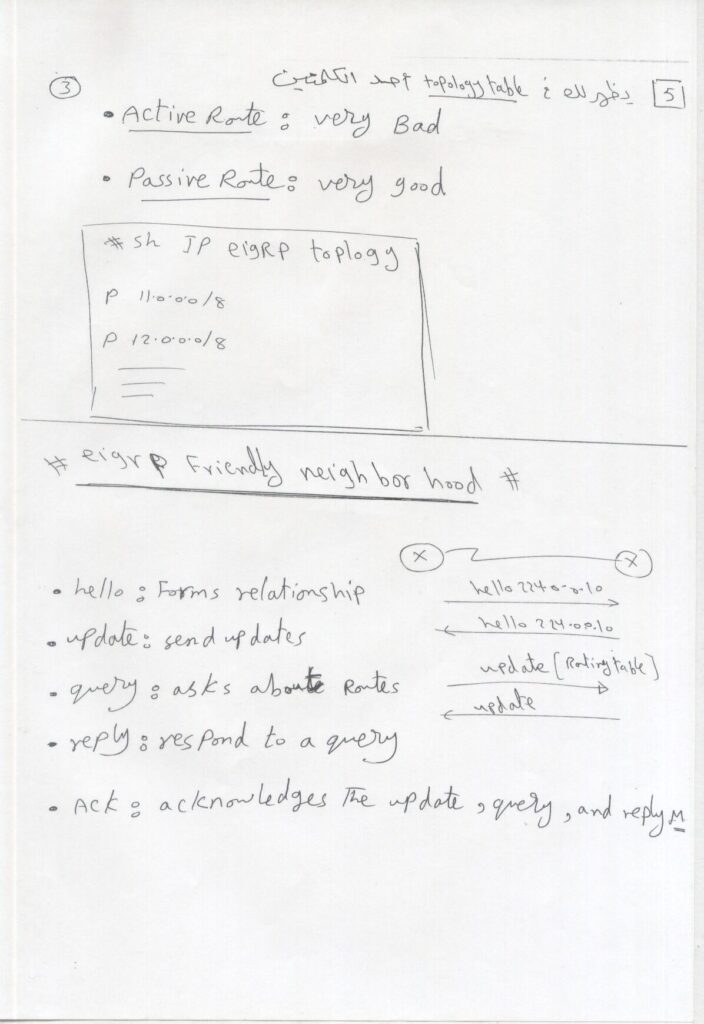 [5] يظهر لك في topology table احد الكلمتين
3
• Active Route : very Bad
• Passive Route : very good
# sh IP eigRP toplogy
P 11.0.0.0/8
P 12.0.0.0/8
# eigrp Friendly neighbor hood #
x x
• hello : Forms relationship
hello 224.0.0.10
• update : send updates
hello 224.00.10
• query : asks aboute Routes
update [Routing table]
• reply : respond to a query
update
• Ack : acknowledges The update , query , and reply M